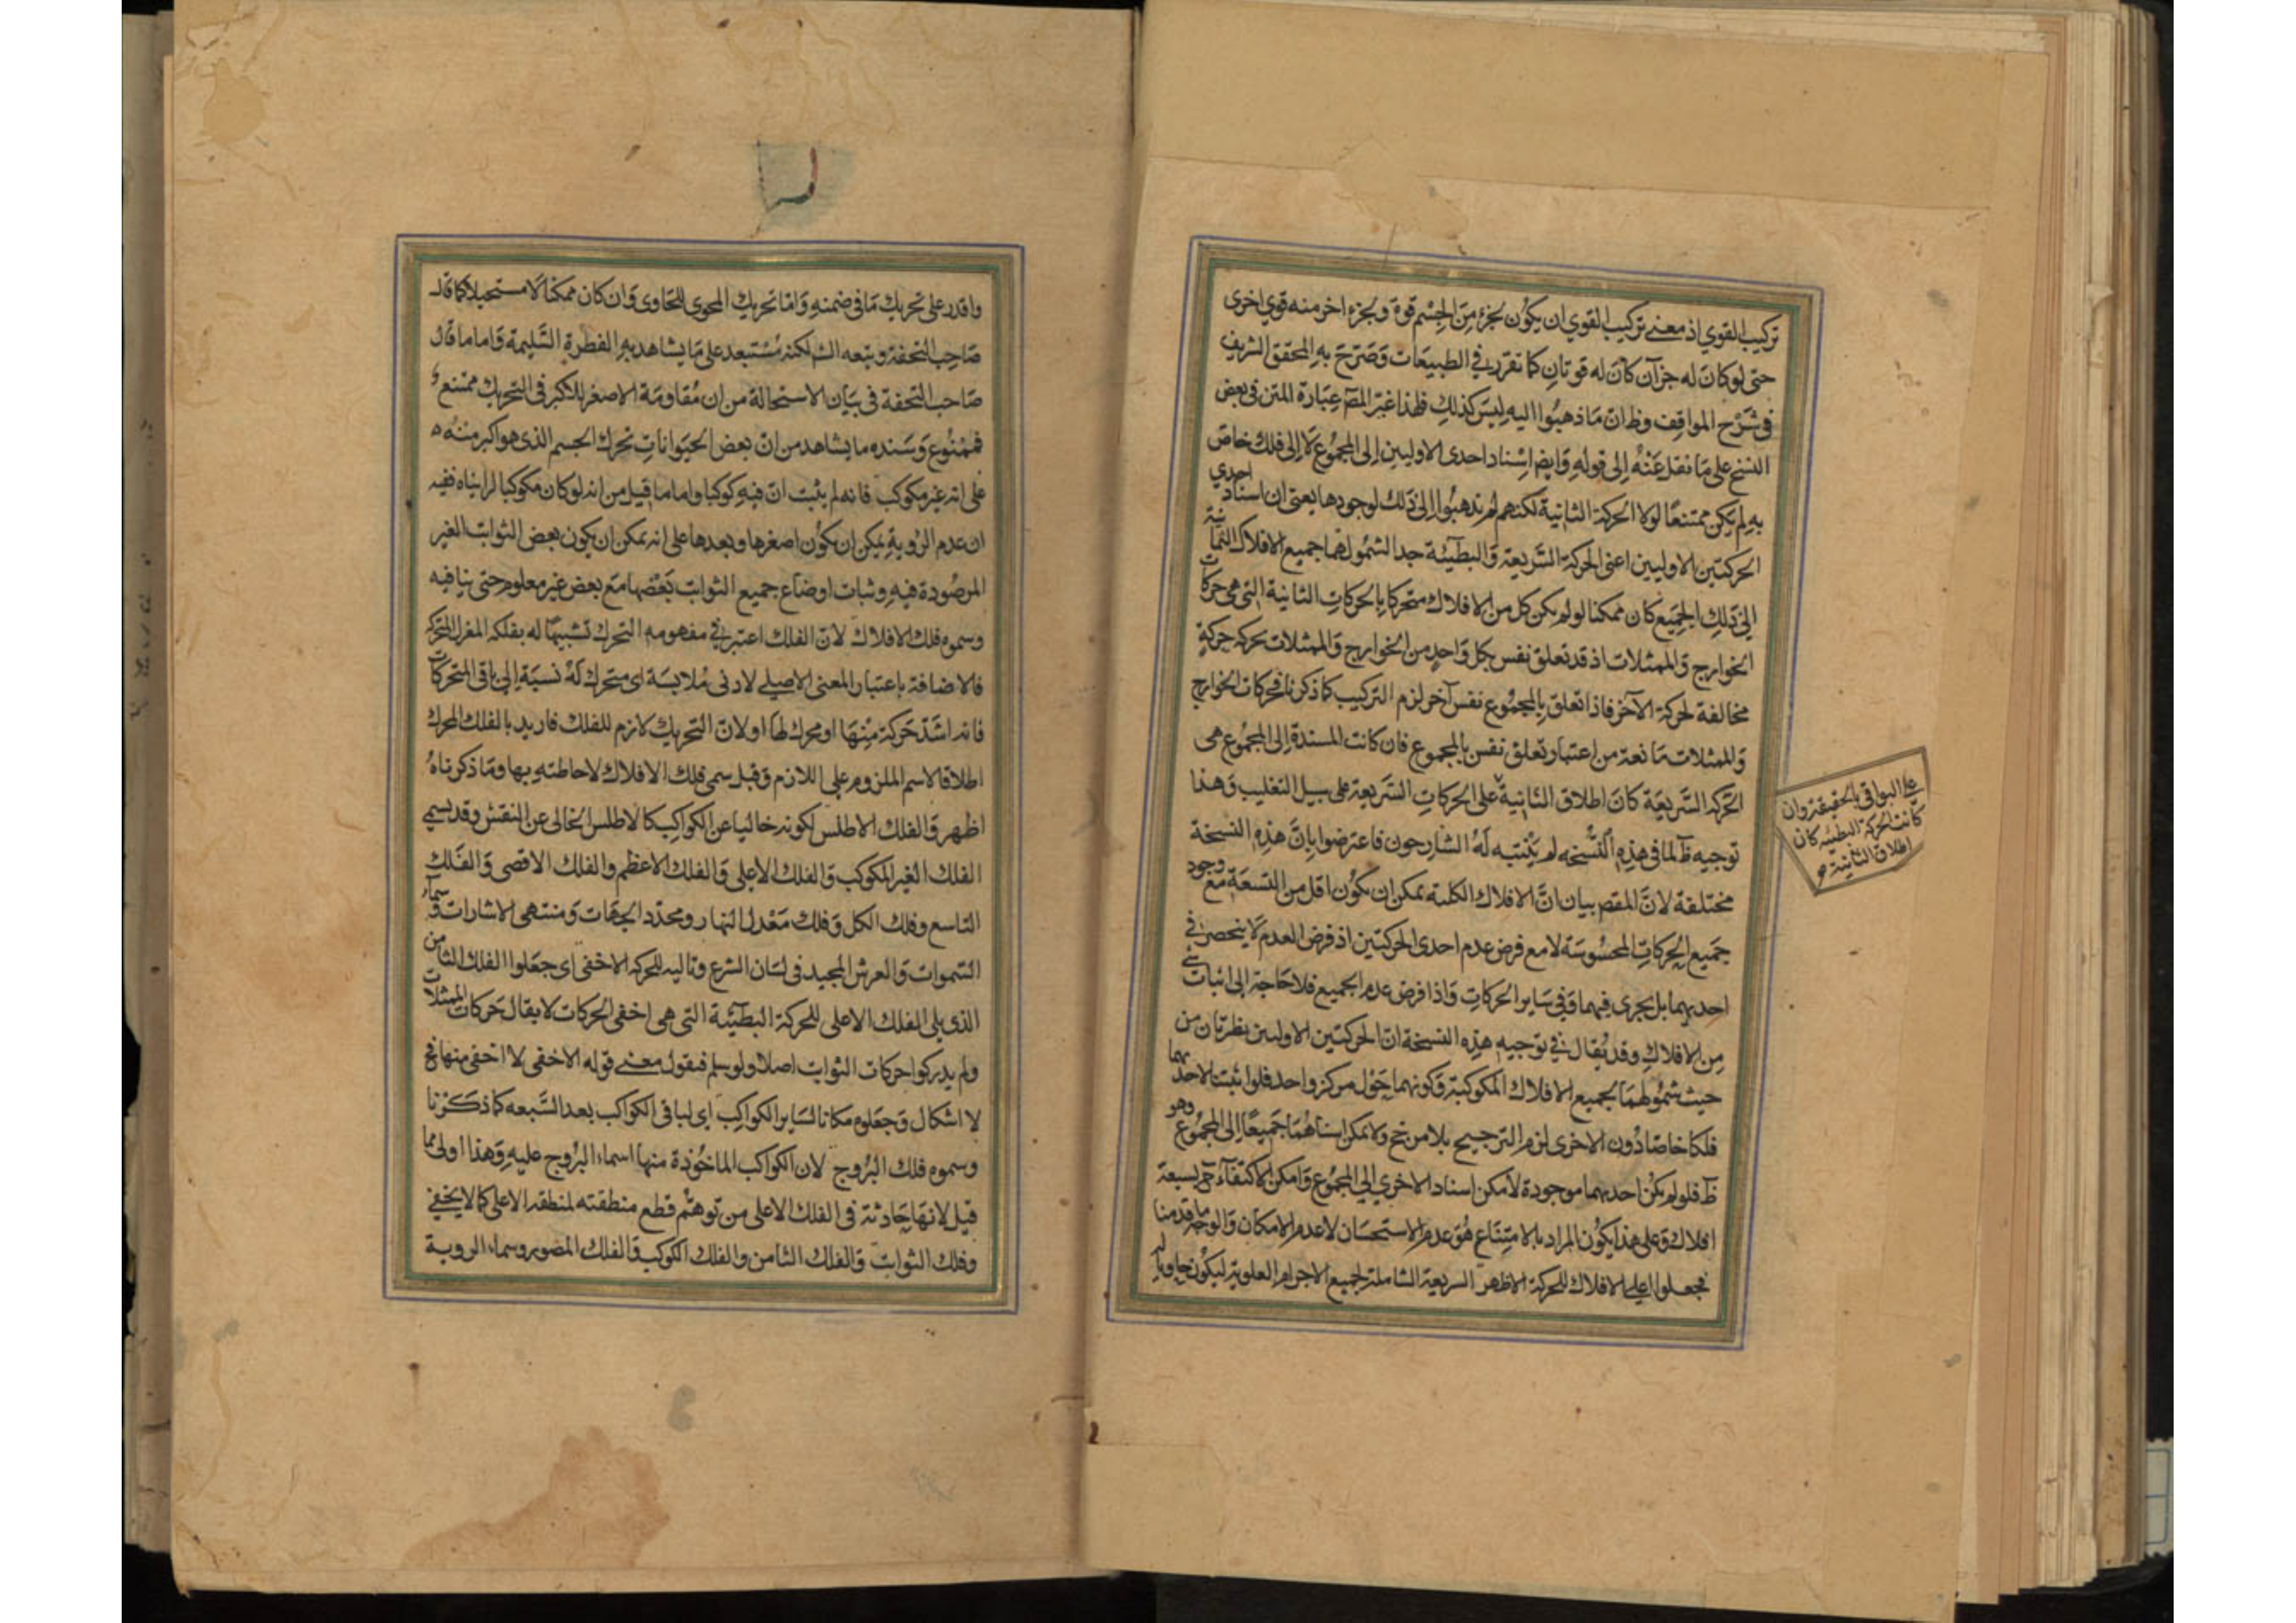 تركيب القوي اذ معنى تركيب القوي ان يكون لجزء من الجسم قوة ولجزء اخر منه قوي اخرى
حتى لو كان له جزآن كان له قوتان كما تقرر في الطبيعات وصرح به المحقق الشريف
في شرح المواقف وظ ان ما ذهبوا اليه ليس كذلك فلهذا غير المص عبارة المتن في بعض
النسخ على ما نقل عنه الى قوله وايضا اسناد احدى الاوليين الى المجموع لا الى فلك خاص
به لم يكن ممتنعا لولا الحركة الثانية لكنهم لم يذهبوا الى ذلك لوجودها يعني ان اسناد احدي
الحركتين الاوليين اعنى الحركة السريعة والبطيئة جدا لشمولهما جميع الافلاك الثمانية
الى ذلك الجميع كان ممكنا لو لم يكن كل من الافلاك متحركا بالحركات الثانية التى هى حركات
الخوارج والممثلات اذ قد تعلق نفس بكل واحد من الخوارج والممثلات تحركه حركة
مخالفة لحركة الآخر فاذا تعلق بالمجموع نفس آخر لزم التركيب كما ذكرنا فحركات الخوارج
والممثلات مانعة من اعتبار تعلق نفس بالمجموع فان كانت المسندة الى المجموع هى
الحركة السريعة كان اطلاق الثانية على الحركات السريعة على سبيل التغليب وهذا
توجيه ظ لما في هذه النسخه لم يتنبه له الشارحون فاعترضوا بان هذه النسخة
مختلفة لان المقصر بيان ان الافلاك الكلية يمكن ان يكون اقل من التسعة مع وجود
جميع الحركات المحسوسة لا مع فرض عدم احدى الحركتين اذ فرض العدم لا ينحصر في
احديهما بل يجرى فيهما وفي ساير الحركات واذا فرض عدم الجميع فلا حاجة الى اثبات شئ
من الافلاك وقد يقال في توجيه هذه النسخة ان الحركتين الاوليين نظرتان من
حيث شمولهما لجميع الافلاك المكوكبة وكونهما حول مركز واحد فلو اثبتنا لاحديهما
فلكا خاصا دون الاخرى لزم الترجيح بلا مرجح ولا يمكن اسنادهما جميعا الى المجموع وهو
ظ فلو لم يكن احديهما موجودة لأمكن اسناد الاخري الى المجموع وامكن الاكتفاء ح بسبعة
افلاك وعلى هذا يكون المراد بالامتناع هو عدم الاستحسان لا عدم الامكان والوجه ما قدمنا
فجعلوا اعلى الافلاك للحركة الاظهر السريعة الشاملة لجميع الاجرام العلوية ليكون حاويا لها
على البواقى بالحقيقة وان
كانت الحركة البطيئة كان
اطلاق الثانية
واقدر على تحريك ما فى ضمنه واما تحريك المحوى للحاوى وان كان ممكنا لا مستحيلا كما قال
صاحب التحفة وتبعه الش لكنه مستبعد على ما يشاهد به الفطرة السليمة واما ما قال
صاحب التحفة فى بيان الاستحالة من ان مقاومة الاصغر للاكبر فى التحريك ممتنع
فممنوع وسنده ما يشاهد من ان بعض الحيوانات تحرك الجسم الذى هو اكبر منه
على انه غير مكوكب فانه لم يثبت ان فيه كوكبا واما ما قيل من انه لو كان مكوكبا لرايناه ففيه
ان عدم الرؤية يمكن ان يكون اصغرها وبعدها على انه يمكن ان يكون بعض الثوابت الغير
المرصودة فيه وثبات اوضاع جميع الثوابت بعضها مع بعض غير معلوم حتى ينافيه
وسموه فلك الافلاك لان الفلك اعتبر في مفهومه التحرك تشبيها له بفلكة المغزل المتحركة
فالاضافة باعتبار المعنى الاصيلے لادنى ملابسة اى متحرك له نسبة الى باقى المتحركات
فانه اشد حركة منها او محرك لها او لان التحريك لازم للفلك فاريد بالفلك المحرك
اطلاقا لاسم الملزوم على اللازم وقيل سمى فلك الافلاك لاحاطته بها وما ذكرناه
اظهر والفلك الاطلس لكونه خاليا عن الكواكب كالاطلس الخالى عن النقش وقد يسمى
الفلك الغير المكوكب والفلك الاعلى والفلك الاعظم والفلك الاقصى والفلك
التاسع وفلك الكل وفلك معدل النهار ومحدد الجهات ومنتهى الاشارات وسماء
السموات والعرش المجيد فى لسان الشرع وتاليه للحركة الاخفى اى جعلوا الفلك الثامن
الذى يلى الفلك الاعلى للحركة البطيئة التى هى اخفى الحركات لا يقال حركات الممثلات
ولم يدركوا حركات الثوابت اصلا ولو سلم فنقول معنى قوله الاخفى لا اخفى منها فح
لا اشكال وجعلوه مكانا لساير الكواكب اى لباقى الكواكب بعد السبعه كما ذكرنا
وسموه فلك البروج لان الكواكب الماخوذة منها اسماء البروج عليه وهذا اولى مما
قيل لانها حادثة فى الفلك الاعلى من توهم قطع منطقته لمنطقه الاعلى كما لا يخفى
وفلك الثوابت والفلك الثامن والفلك المكوكب والفلك المصور وسماء الروية